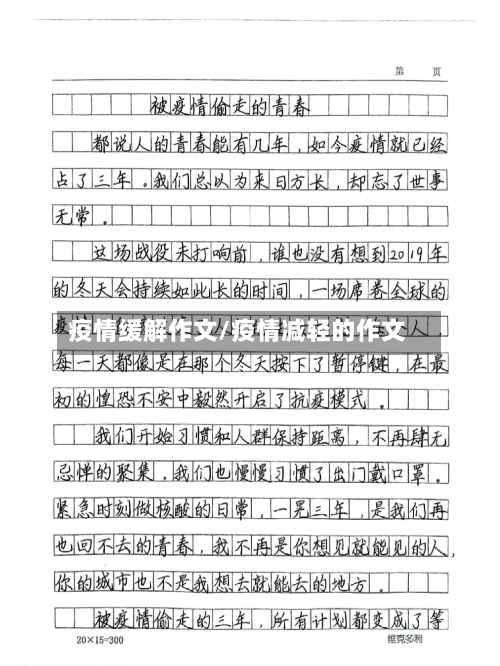 第 页
被疫情偷走的青春
都说人的青春能有几年，如今疫情就已经
占了三年。我们总以为来日方长，却忘了世事
无常。
这场战役未打响前，谁也没有想到2019年
的冬天会持续如此长的时间，一场席卷全球的
疫情缓解作文/疫情减轻的作文
每一天都像是在那个冬天按下了暂停键，在最
初的惶恐不安中毅然开启了抗疫模式。
我们开始习惯和人群保持距离，不再肆无
忌惮的聚集。我们也慢慢习惯了出门戴口罩。
紧急时刻做核酸的日常，一晃三年，是我们再
也回不去的青春，我不再是你想见就能见的人，
你的城市也不是我想去就能去的地方。
被疫情偷走的三年，所有计划都变成了等
20×15=300 维克多利